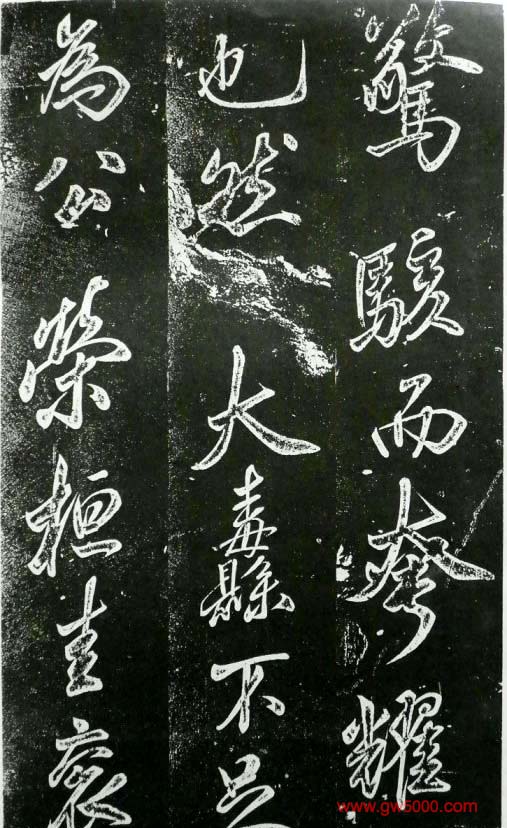 驚駭而夸耀
也然大纛不足
為公榮桓圭袞
www.gw5000.com